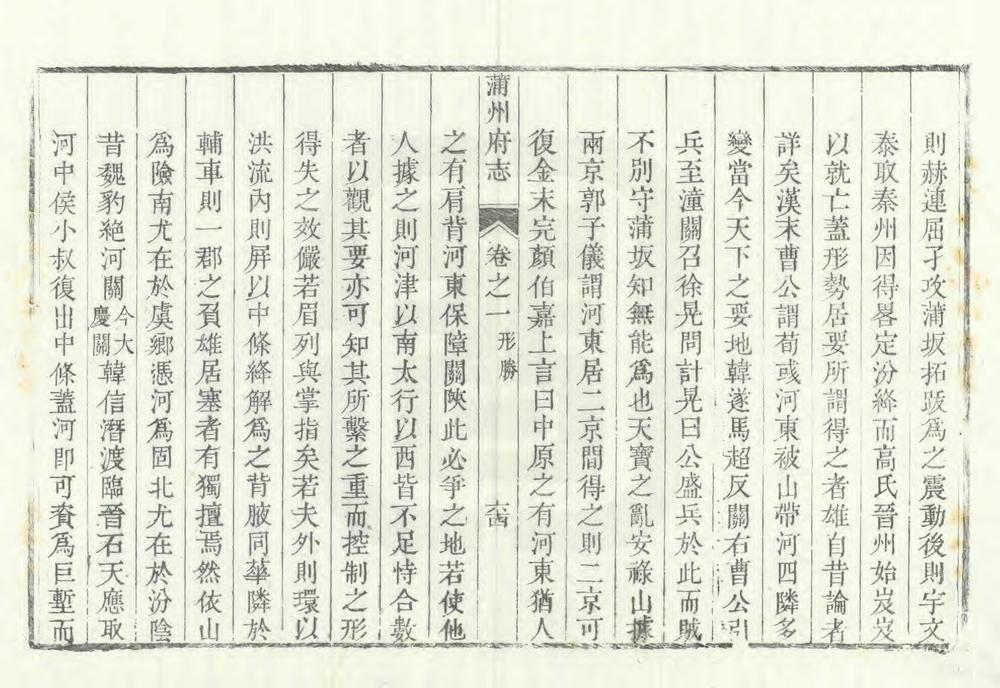 則赫連屈孑攻蒲坂拓跋爲之震動後則宇文
泰取秦州因得畧定汾絳而高氏晉州始岌岌
以就亡蓋形勢居要所謂得之者雄自昔論者
詳矣漢末曹公謂荀彧河東被山帶河四隣多
變當今天下之要地韓遂馬超反關右曹公引
兵至潼關召徐晃問計晃曰公盛兵於此而賊
不別守蒲坂知無能爲也天寶之亂安祿山據
兩京郭子儀謂河東居二京間得之則二京可
復金末完顏伯嘉上言曰中原之有河東猶人
蒲州府志 卷之一 形勝
之有肩背河東保障關陝此必爭之地若使他
人據之則河津以南太行以西皆不足恃合數
者以觀其要亦可知其所繫之重而控制之形
得失之效儼若眉列與掌指矣若夫外則環以
洪流內則屏以中條絳解爲之背腋同華隣於
輔車則一郡之負雄居塞者有獨擅焉然依山
爲險南尤在於虞鄉憑河爲固北尤在於汾陰
昔魏豹絕河關今大慶關韓信潛渡臨晉石天應取
河中侯小叔復出中條蓋河卽可資爲巨塹而